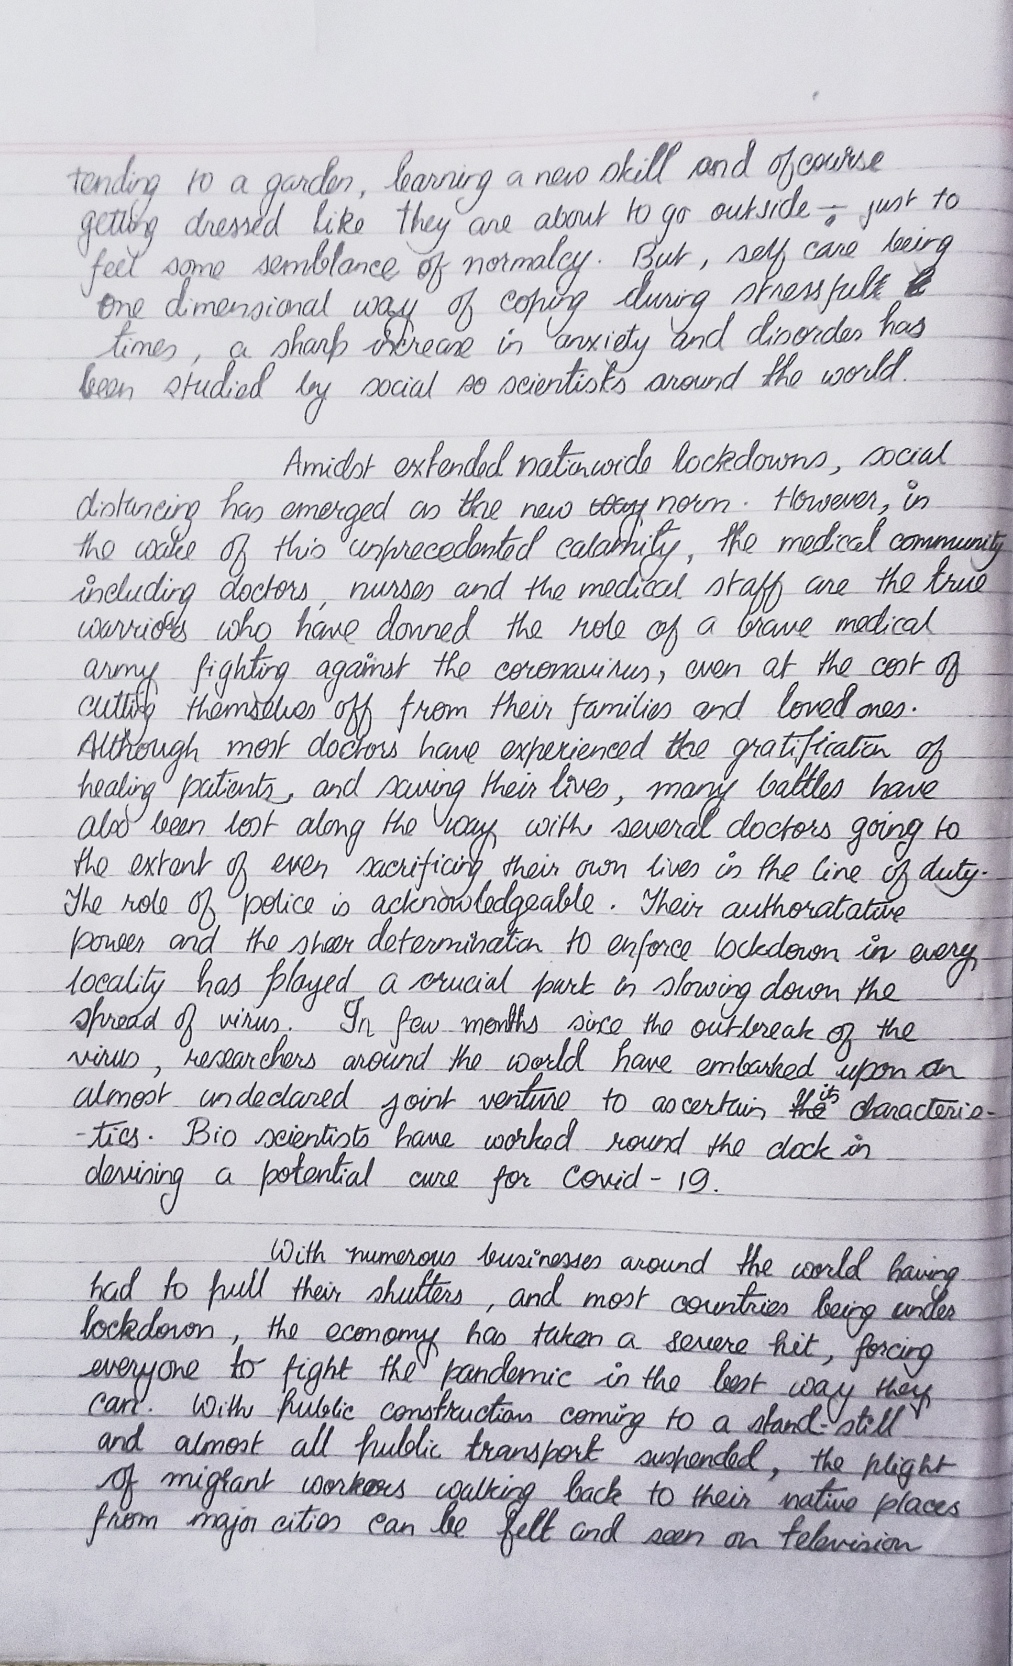 tending to a garden, learning a new skill and ofcourse
getting dressed like they are about to go outside - just to
feel some semblance of normalcy. But, self care being
one dimensional way of coping during stressful
times, a sharp increase in anxiety and disorder has
been studied by social so scientists around the world.
Amidst extended nationwide lockdowns, social
distancing has emerged as the new way norm. However, in
the wake of this unprecedented calamity, the medical community
including doctors, nurses and the medical staff are the true
warriors who have donned the role of a brave medical
army fighting against the coronavirus, even at the cost of
cutting themselves off from their families and loved ones.
Although most doctors have experienced the gratification of
healing patients, and saving their lives, many battles have
also been lost along the way, with several doctors going to
the extent of even sacrificing their own lives in the line of duty.
The role of police is acknowledgeable. Their authoratative
power and the sheer determination to enforce lockdown in every
locality has played a crucial part in slowing down the
spread of virus. In few months since the outbreak of the
virus, researchers around the world have embarked upon an
almost undeclared joint venture to ascertain the its characteris-
-tics. Bio scientists have worked round the clock in
devining a potential cure for Covid-19.
With numerous businesses around the world having
had to pull their shutters, and most countries being under
lockdown, the economy has taken a severe hit, forcing
everyone to fight the pandemic in the best way they
can. With public construction coming to a stand-still
and almost all public transport suspended, the plight
of migrant workers walking back to their native places
from major cities can be felt and seen on television